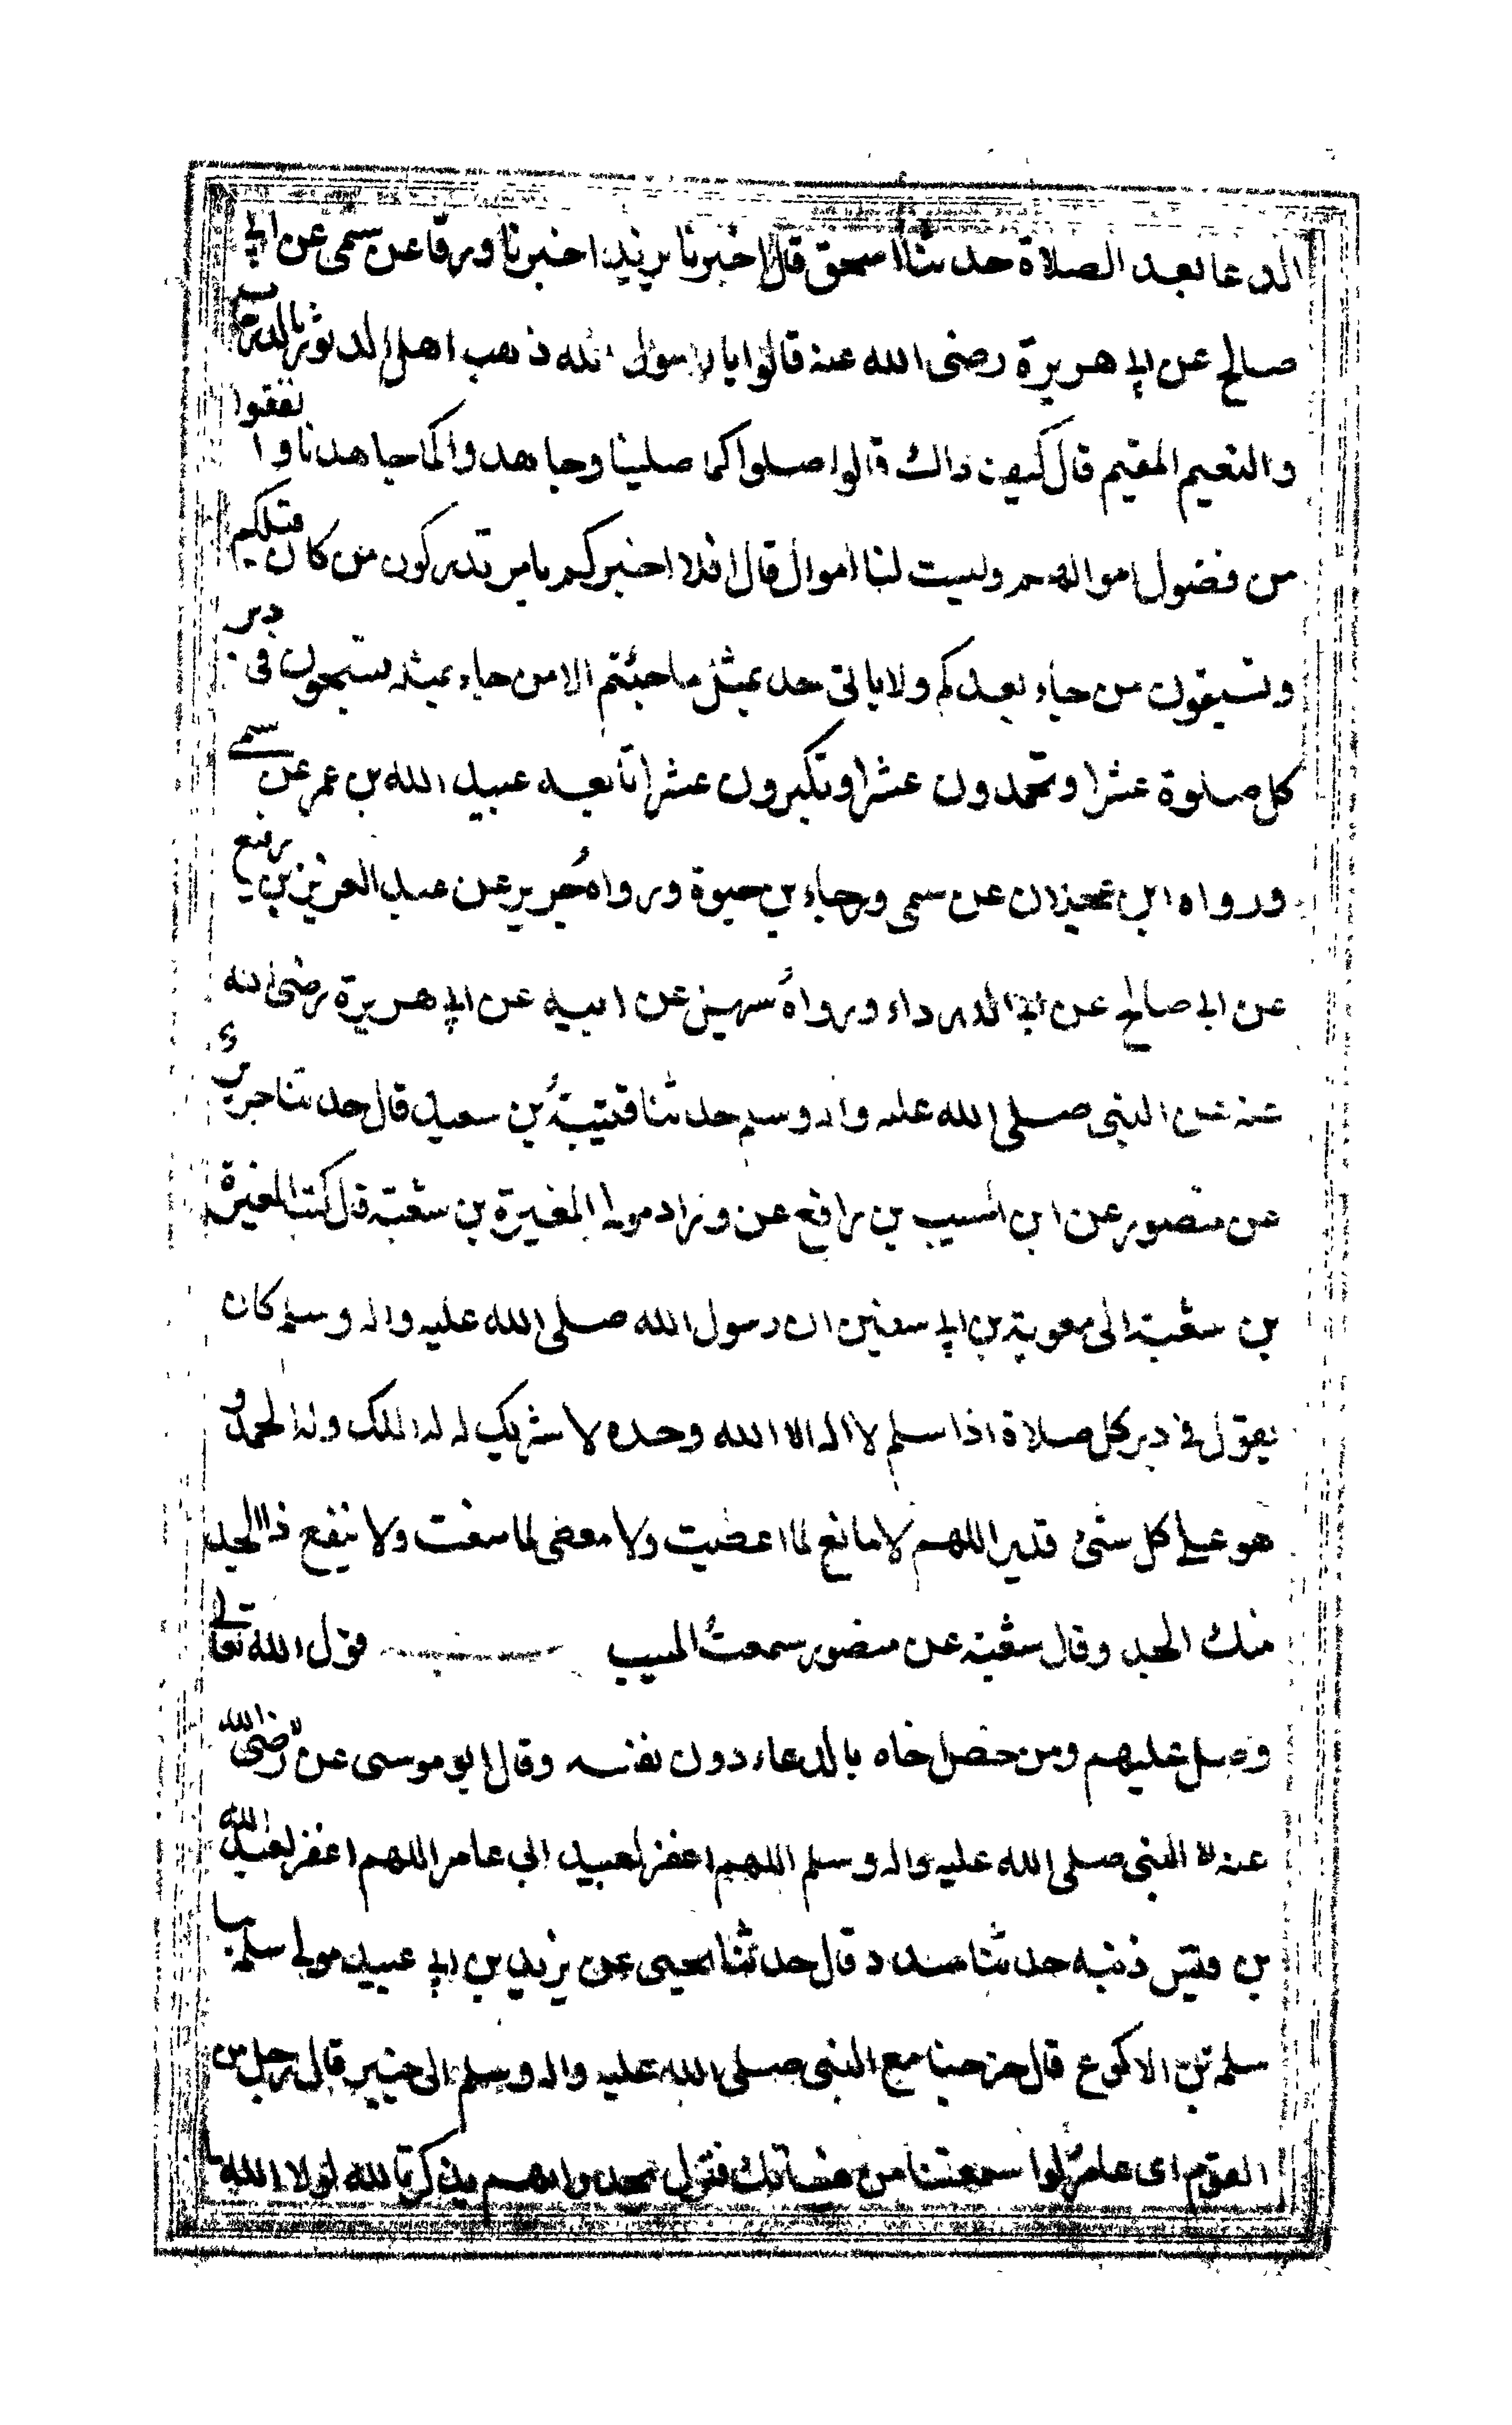 الدعا بعد الصلاة حدثنا اسحق قال اخبرنا يزيد اخبرنا ورقا عن سمى عن ابي
صالح عن ابي هريرة رضى الله عنه قالوا يا رسول الله ذهب اهل الدثور بالدرجات
والنعيم المقيم قال كيف ذاك قالوا صلوا كما صلينا وجاهدوا كما جاهدنا وانفقوا
من فضول اموالهم وليست لنا اموال قال افلا اخبركم بامر تدركون من كان قبلكم
وتسبقون من جاء بعدكم ولا ياتى حد بمثل ما جئتم الا من جاء بمثله تسبحون فى دبر
كل صلوة عشرا وتحمدون عشرا وتكبرون عشرا تابعه عبيد الله بن عمر عن سمى
ورواه ابن عجلان عن سمى ورجاء بن حيوة ورواه جرير عن عبد العزيز بن رفيع
عن ابي صالح عن ابي الدرداء ورواه سهيل عن ابيه عن ابي هريرة رضى الله
عنه عن النبى صلى الله عليه واله وسلم حدثنا قتيبة بن سعيد قال حدثنا جرير
عن منصور عن ابن المسيب بن رافع عن وراد مولى المغيرة بن شعبة قال كتب المغيرة
بن شعبة الى معوية بن ابي سفين ان رسول الله صلى الله عليه واله وسلم كان
يقول فى دبر كل صلاة اذا سلم لا اله الا الله وحده لا شريك له له الملك وله الحمد و
هو على كل شئ قدير اللهم لا مانع لما اعطيت ولا معطى لما منعت ولا ينفع ذا الجد
منك الجد وقال شعبة عن منصور سمعت المسيب قول الله تعالى
وصل عليهم ومن خص اخاه بالدعاء دون نفسه وقال ابو موسى عن رضى الله
عنه قال النبى صلى الله عليه واله وسلم اللهم اغفر لعبيد ابي عامر اللهم اغفر لعبد الله
بن قيس ذنبه حدثنا مسدد قال حدثنا يحيى عن يزيد بن ابي عبيد مولى سلمة
سلمة بن الاكوع قال خرجنا مع النبى صلى الله عليه واله وسلم الى خيبر قال رجل من
القوم اى عامر لوا سمعتنا من هنياتك فنزل يحدوا بهم يذكر تالله لولا الله